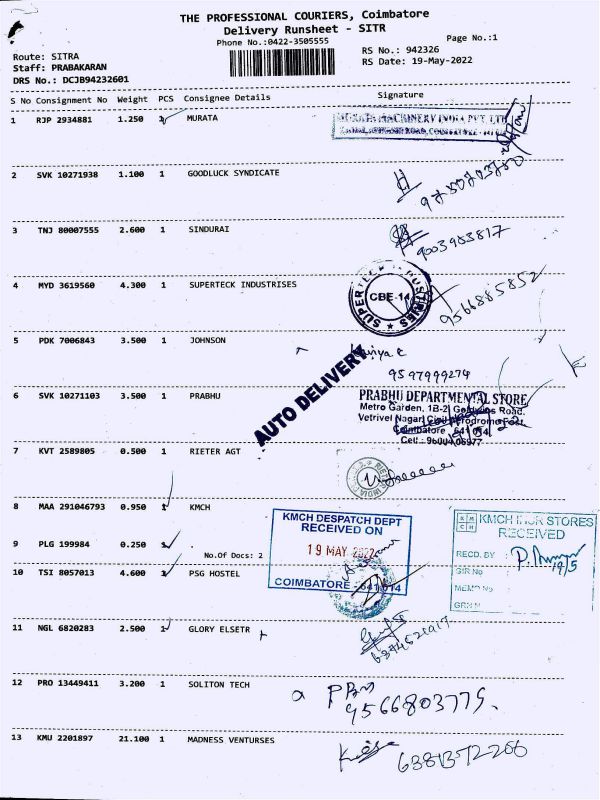 THE PROFESSIONAL COURIERS, Coimbatore
Delivery Runsheet - SITR
Phone No.:0422-3505555
Page No.:1
Route: SITRA
Staff: PRABAKARAN
DRS No.: DCJB94232601
RS No.: 942326
RS Date: 19-May-2022
S No Consignment No Weight PCS Consignee Details Signature
1 RJP 2934881 1.250 MURATA
MURATA MACHINERY INDIA PVT. LTD
2 SVK 10271938 1.100 1 GOODLUCK SYNDICATE
3 TNJ 80007555 2.600 1 SINDURAI
9003953817
4 MYD 3619560 4.300 1 SUPERTECK INDUSTRISES
SUPERTECK INDUSTRIES
CBE-14
9566885852
5 PDK 7006843 3.500 1 JOHNSON
9597999274
AUTO DELIVERY
6 SVK 10271103 3.500 1 PRABHU
PRABHU DEPARTMENTAL STORE
Metro Garden, 1B-2, Road,
Vetrivel Nagar, Civil Aerodrome Post,
Coimbatore - 641 014.
Cell:
7 KVT 2589805 0.500 1 RIETER AGT
8 MAA 291046793 0.950 1 KMCH
KMCH DESPATCH DEPT
RECEIVED ON
19 MAY 2022
COIMBATORE - 641 014
KMCH STORES
RECEIVED
RECD. BY
19/5
GIR No
MEMO No
GRN No
9 PLG 199984 0.250 1
No.Of Docs: 2
10 TSI 8057013 4.600 1 PSG HOSTEL
11 NGL 6820283 2.500 1 GLORY ELSETR
6374621917
12 PRO 13449411 3.200 1 SOLITON TECH
9566803775.
13 KMU 2201897 21.100 1 MADNESS VENTURSES